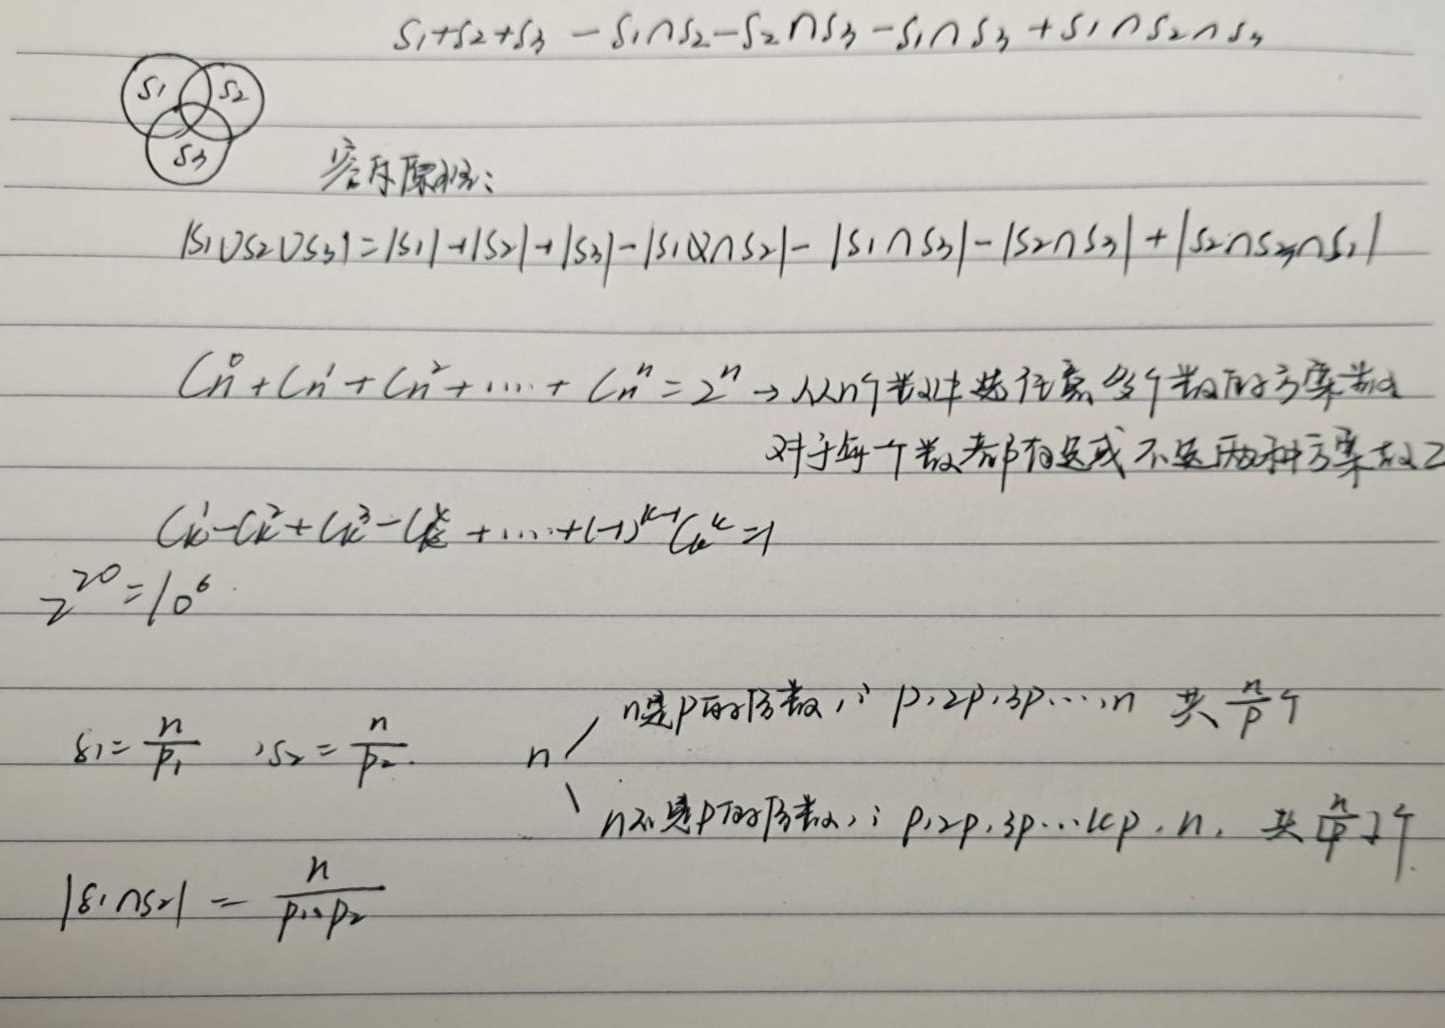 S1+S2+S3 - S1∩S2 - S2∩S3 - S1∩S3 + S1∩S2∩S3
S1 S2
S3
容斥原理:
|S1∪S2∪S3| = |S1|+|S2|+|S3| - |S1∩S2| - |S1∩S3| - |S2∩S3| + |S2∩S3∩S1|
Cn^0 + Cn^1 + Cn^2 + ···· + Cn^n = 2^n → 从n个数中选任意多个数的方案数
对于每一个数都有选或不选两种方案故2
Ck^1 - Ck^2 + Ck^3 - Ck^4 + ···· + (-1)^(k-1) Ck^k = 1
2^20 = 10^6
n是p的倍数, : p, 2p, 3p ···, n 共 n/p 个
S1 = n/p1 , S2 = n/p2 n
n不是p的倍数, : p, 2p, 3p ··· kp, n, 共 ⌊n/p⌋ 个
|S1∩S2| = n/(p1·p2)